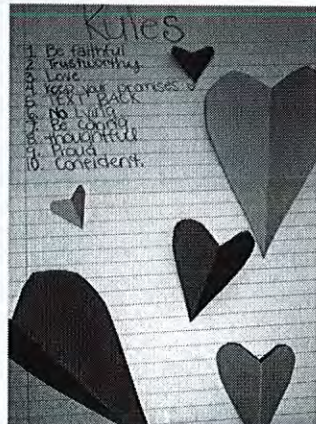 Rules
1. Be faithful
2. Trustworthy
3. Love
4. Keep your promises
5. TEXT BACK
6. No Lying
7. Be caring
8. thoughtful
9. Proud
10. Confident.